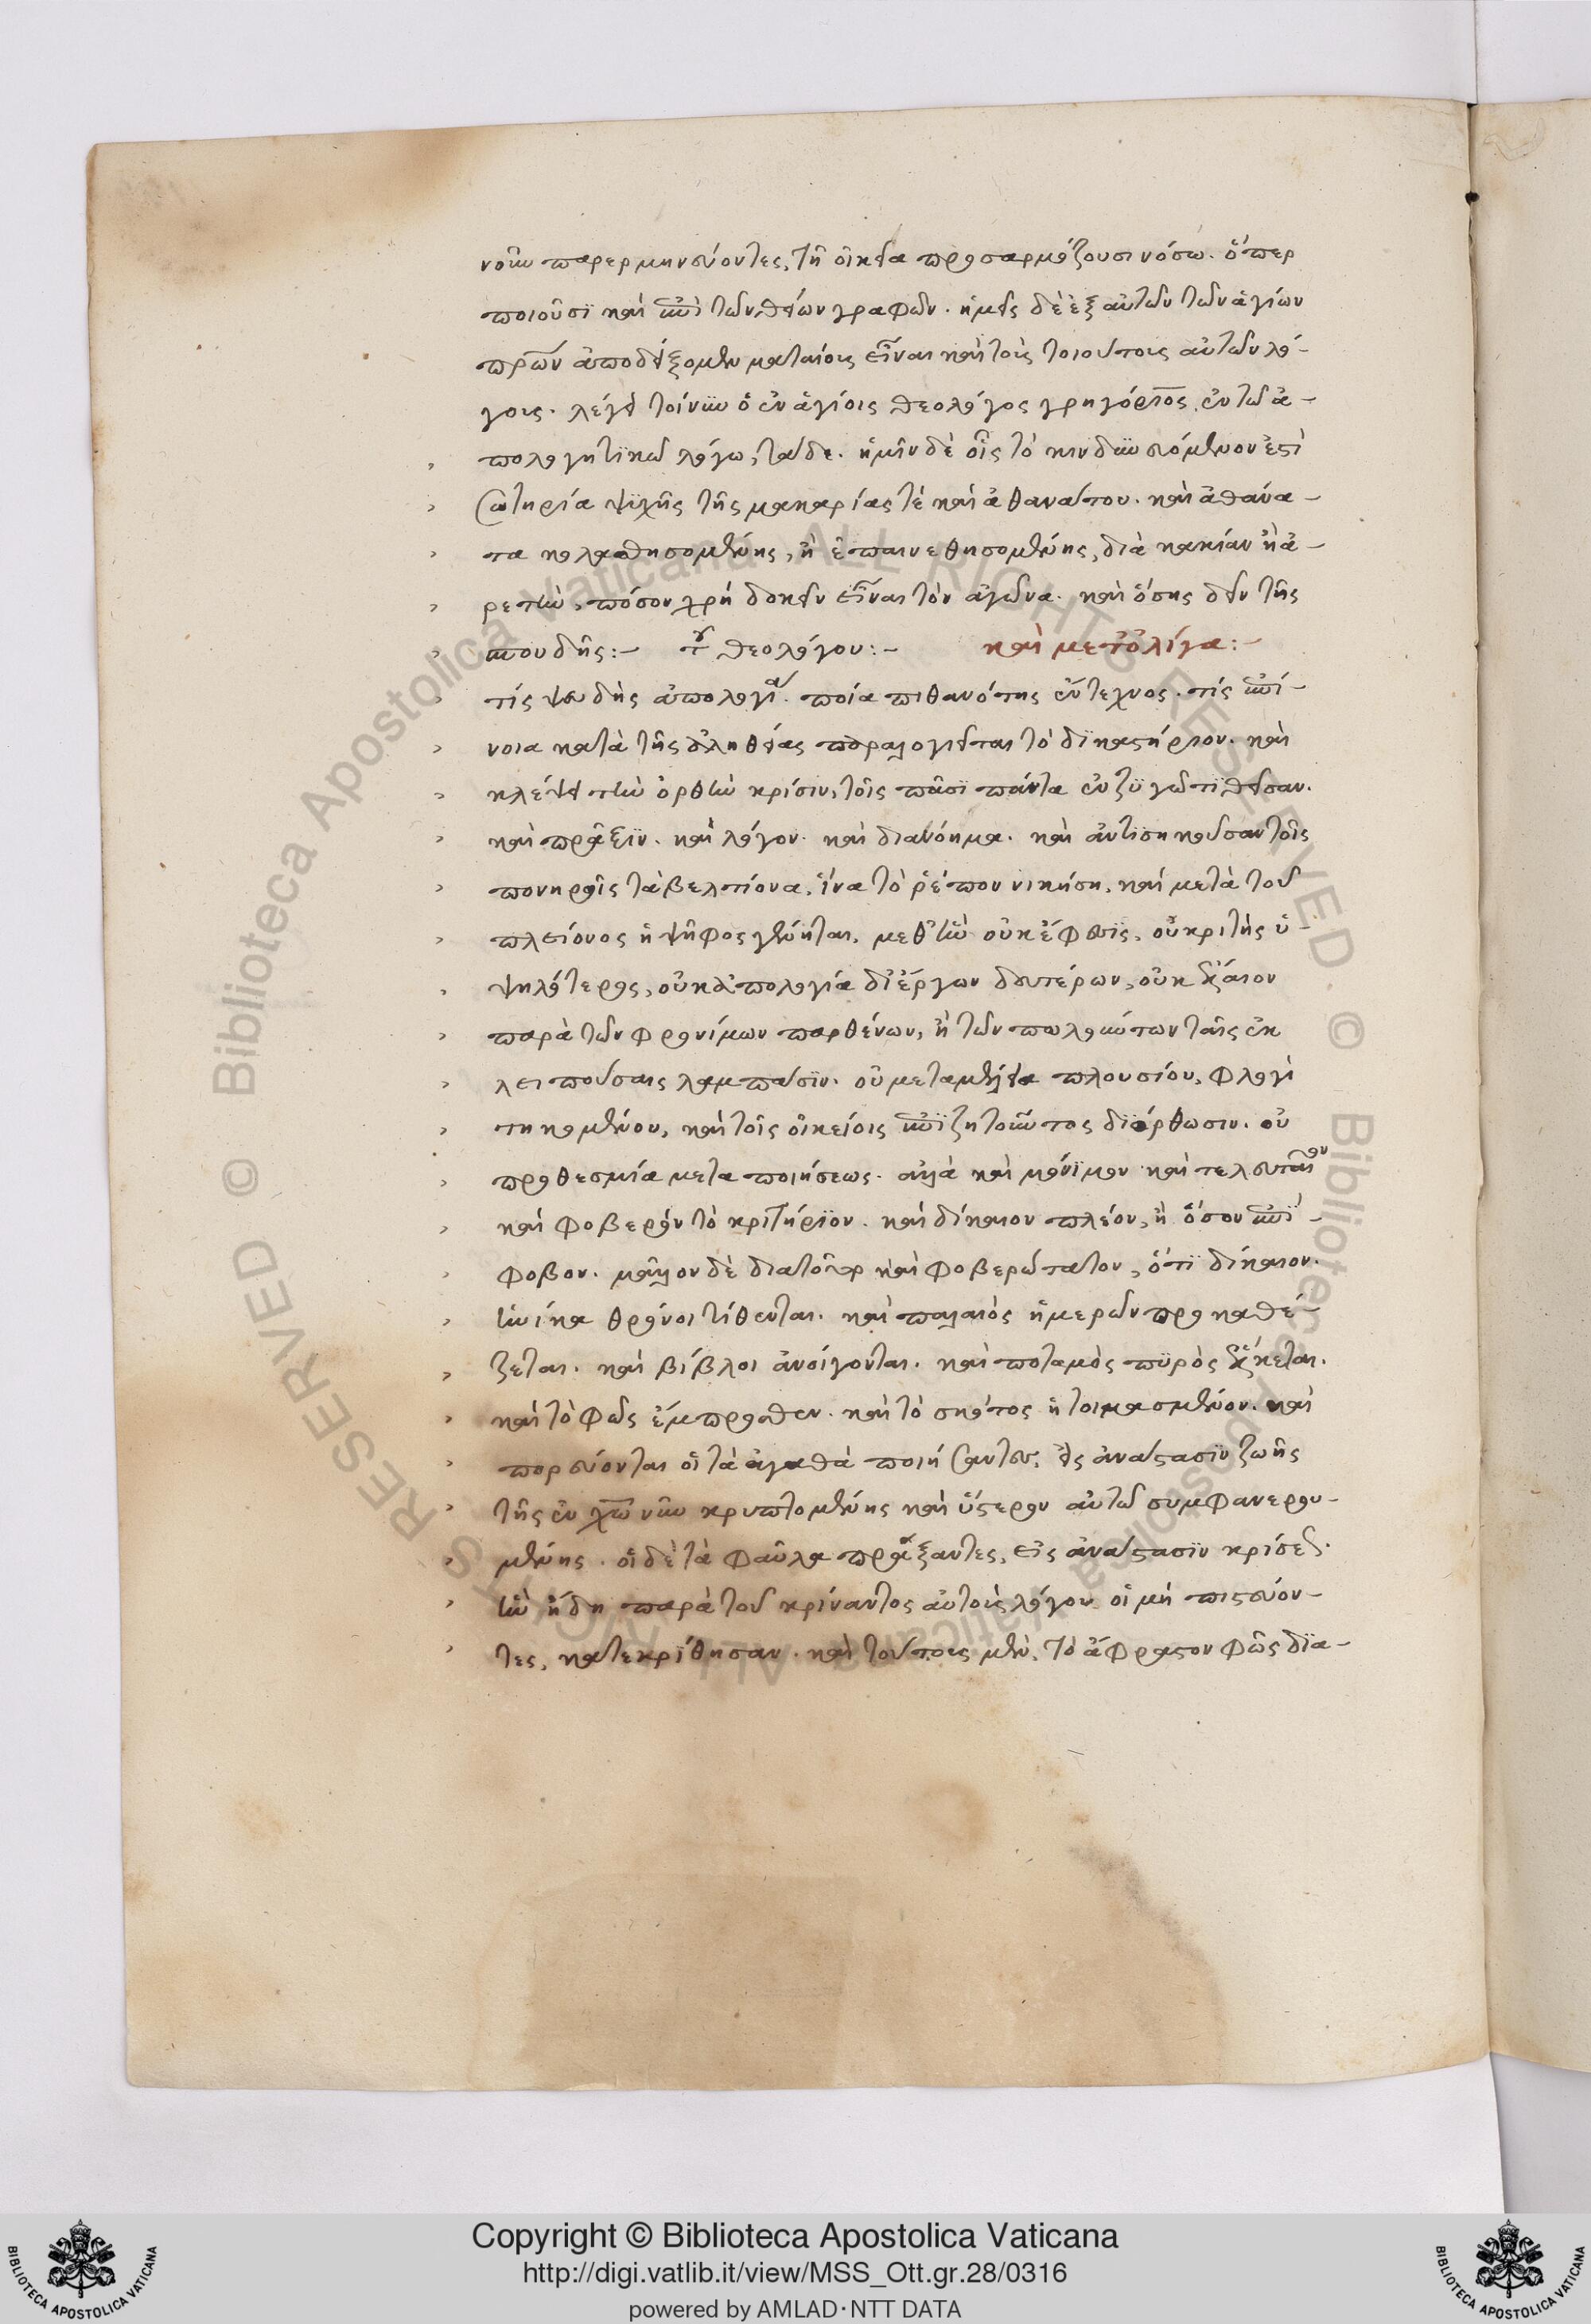 νοῦν παρερμηνεύοντες, τῆ οἰκεία προσαρμόζουσι νόσω. ὅπερ
ποιοῦσι καὶ ἐπὶ τῶν θείων γραφῶν. ἡμεῖς δὲ ἐξ αὐτῶν τῶν ἁγίων
πρῶν ἀποδείξομεν ματαίοις εἶναι καὶ τοῖς τοιούτοις αὐτῶν λό-
γοις. λέγει τοίνυν ὁ ἐν ἁγίοις θεολόγος γρηγόριος, ἐν τῶ ἀ-
πολογητικῶ λόγω, τάδε. ἡμῖν δὲ οἷς τὸ κινδυνευόμενον ἐστὶ
σωτηρία ψυχῆς τῆς μακαρίας τὲ καὶ ἀθανάτου. καὶ ἀθάνα-
τα κολασθησομένης, ἢ ἐπαινεθησομένης, διὰ κακίαν ἢ ἀ-
ρετὴν, πόσον χρὴ δοκεῖν εἶναι τὸν ἀγῶνα. καὶ ὅσης δεῖν τῆς
σπουδῆς:- τοῦ θεολόγου:- καὶ μετ' ὀλίγα:-
τίς ψευδὴς ἀπολογία. ποία πιθανότης ἔντεχνος. τίς ἐπί-
νοια κατὰ τῆς ἀληθείας παραλογιεῖται τὸ δικαστήριον. καὶ
κλέψει τὴν ὀρθὴν κρίσιν, τοῖς πᾶσι πάντα ἐν ζυγῶ τιθεῖσαν.
καὶ πρᾶξιν. καὶ λόγον. καὶ διανόημα. καὶ ἀντισηκοῦσαν τοῖς
πονηροῖς τὰ βελτίονα, ἵνα τὸ ῥέπον νικήση, καὶ μετὰ τοῦ
πλείονος ἡ ψῆφος γένηται, μεθ' ἣν οὐκ ἔφεσις, οὐ κριτὴς ὑ-
ψηλότερος, οὐκ ἀπολογία δι' ἔργων δευτέρων, οὐκ ἔλαιον
παρὰ τῶν φρονίμων παρθένων, ἢ τῶν πωλούντων ταῖς ἐκ
λειπούσαις λαμπάσιν. οὐ μεταμέλεια πλουσίου, φλογὶ
τηκομένου, καὶ τοῖς οἰκείοις ἐπιζητοῦντος διόρθωσιν. οὐ
προθεσμία μεταποιήσεως. ἀλλὰ καὶ μόνιμον καὶ τελευταῖον
καὶ φοβερὸν τὸ κριτήριον. καὶ δίκαιον πλέον, ἢ ὅσον ἐπί-
φοβον. μᾶλλον δὲ διατοῦτο καὶ φοβερώτατον, ὅτι δίκαιον.
ἡνίκα θρόνοι τίθενται. καὶ παλαιὸς ἡμερῶν προκαθέ-
ζεται. καὶ βίβλοι ἀνοίγονται. καὶ ποταμὸς πυρὸς ἕλκεται.
καὶ τὸ φῶς ἔμπροσθεν. καὶ τὸ σκότος ἡτοιμασμένον. καὶ
πορεύονται οἱ τὰ ἀγαθὰ ποιήσαντες, εἰς ἀνάστασιν ζωῆς
τῆς ἐν χῶ νῦν κρυπτομένης καὶ ὕστερον αὐτῶ συμφανερου-
μένης. οἱ δὲ τὰ φαῦλα πράξαντες, εἰς ἀνάστασιν κρίσεως.
ἣν ἤδη παρὰ τοῦ κρίναντος αὐτοὺς λόγου οἱ μὴ πιστεύον-
τες, κατεκρίθησαν. καὶ τούτοις μὲν, τὸ ἄφραστον φῶς δια-
Copyright © Biblioteca Apostolica Vaticana
http://digi.vatlib.it/view/MSS_Ott.gr.28/0316
powered by AMLAD·NTT DATA